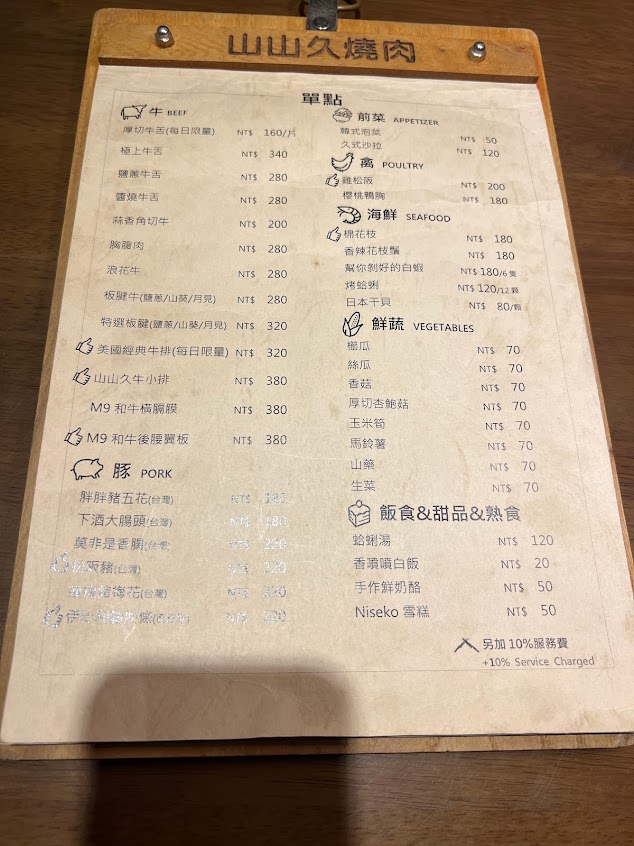 山山久燒肉
單點
牛 BEEF
厚切牛舌(每日限量) NT$ 160/片
極上牛舌 NT$ 340
鹽蔥牛舌 NT$ 280
醬燒牛舌 NT$ 280
蒜香角切牛 NT$ 200
胸腹肉 NT$ 280
浪花牛 NT$ 280
板腱牛(鹽蔥/山葵/月見) NT$ 280
特選板腱(鹽蔥/山葵/月見) NT$ 320
美國經典牛排(每日限量) NT$ 320
山山久牛小排 NT$ 380
M9 和牛橫膈膜 NT$ 380
M9 和牛後腰翼板 NT$ 380
豚 PORK
胖胖豬五花(台灣) NT$ 180
下酒大腸頭(台灣) NT$ 180
莫非是香腸(台灣) NT$
松阪豬(台灣) NT$
梅花(台灣) NT$
伊 NT$
前菜 APPETIZER
韓式泡菜 NT$ 50
久式沙拉 NT$ 120
禽 POULTRY
雞松阪 NT$ 200
櫻桃鴨胸 NT$ 180
海鮮 SEAFOOD
棉花枝 NT$ 180
香辣花枝鬚 NT$ 180
幫你剝好的白蝦 NT$ 180/6 隻
烤蛤蜊 NT$ 120/12 顆
日本干貝 NT$ 80/顆
鮮蔬 VEGETABLES
櫛瓜 NT$ 70
絲瓜 NT$ 70
香菇 NT$ 70
厚切杏鮑菇 NT$ 70
玉米筍 NT$ 70
馬鈴薯 NT$ 70
山藥 NT$ 70
生菜 NT$ 70
飯食&甜品&熟食
蛤蜊湯 NT$ 120
香噴噴白飯 NT$ 20
手作鮮奶酪 NT$ 50
Niseko 雪糕 NT$ 50
另加 10%服務費
+10% Service Charged